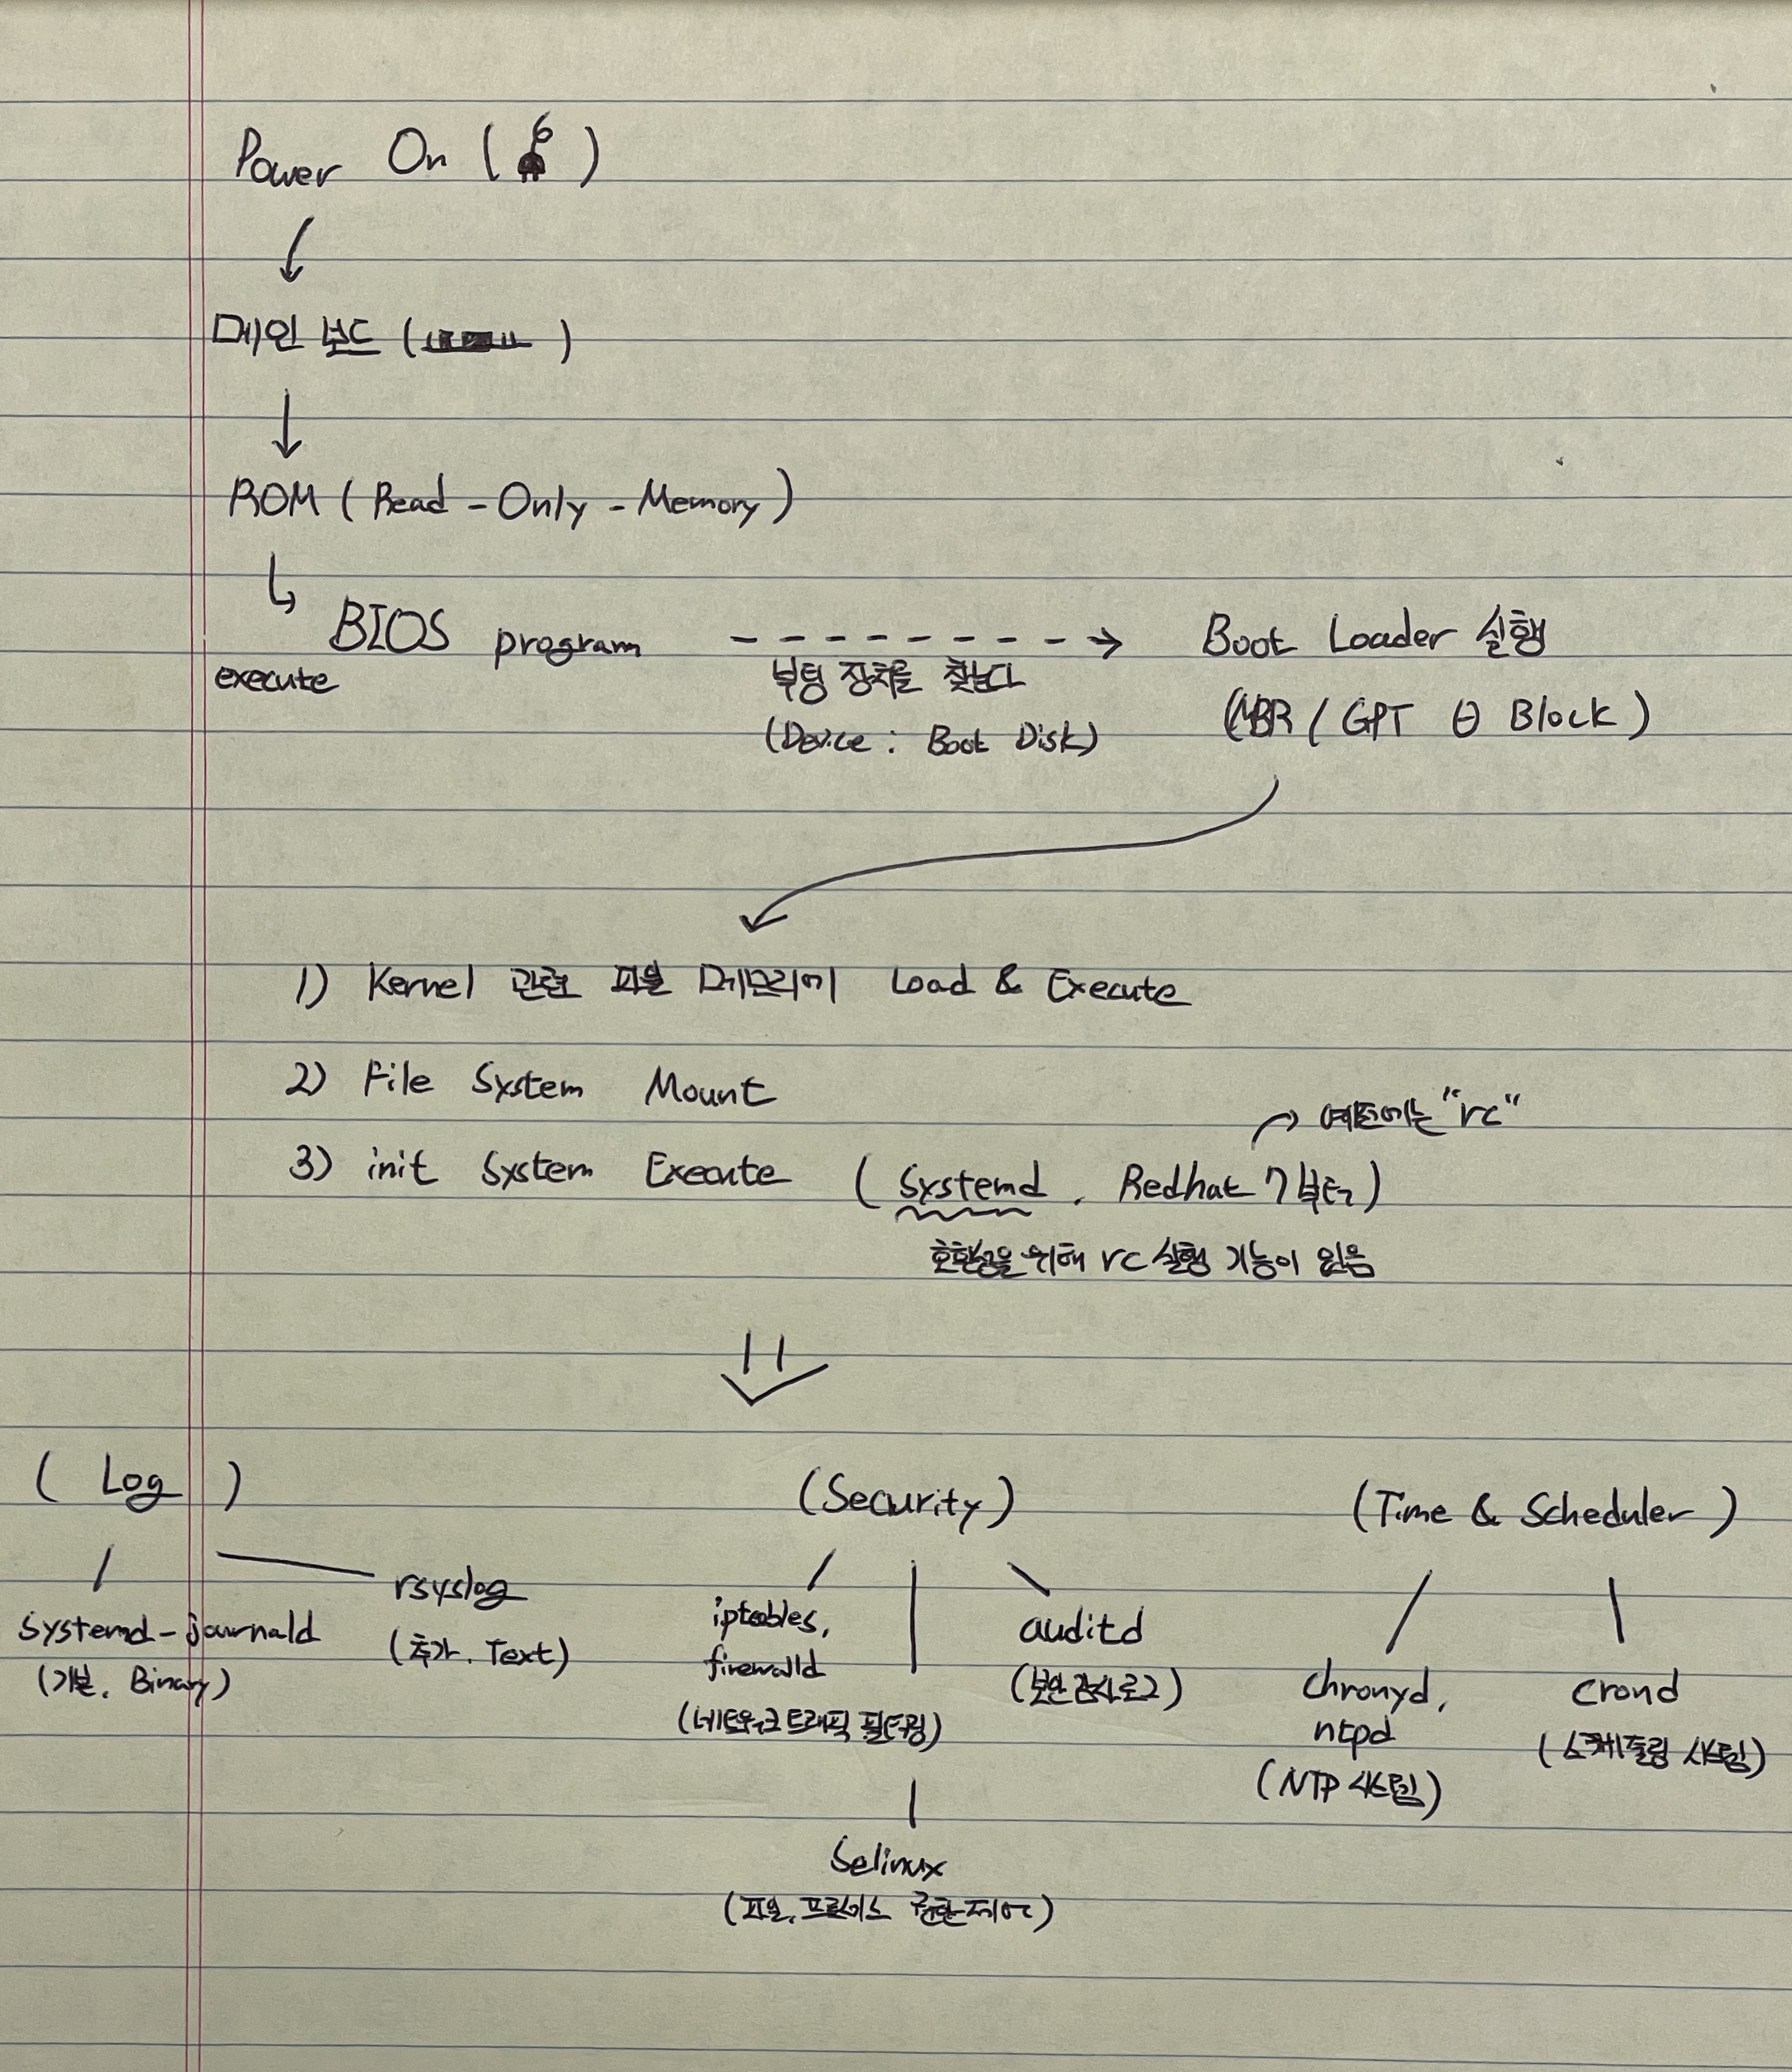 Power On ( )
메인 보드 ( )
ROM ( Read - Only - Memory )
BIOS program
execute
부팅 장치를 찾는다
(Device : Boot Disk)
Boot Loader 실행
(MBR / GPT Block )
1) Kernel 관련 파일 메모리에 Load & Execute
2) File System Mount
3) init System Execute ( Systemd , Redhat 7부터 )
예전에는 "rc"
호환성을 위해 rc 실행 기능이 있음
( Log )
systemd-journald
(기본, Binary)
rsyslog
(추가, Text)
(Security)
iptables,
firewalld
(네트워크 트래픽 필터링)
auditd
(보안 감사 로그)
Selinux
(파일, 프로세스 권한 제어)
(Time & Scheduler )
chronyd,
ntpd
(NTP 시스템)
crond
(스케줄링 시스템)